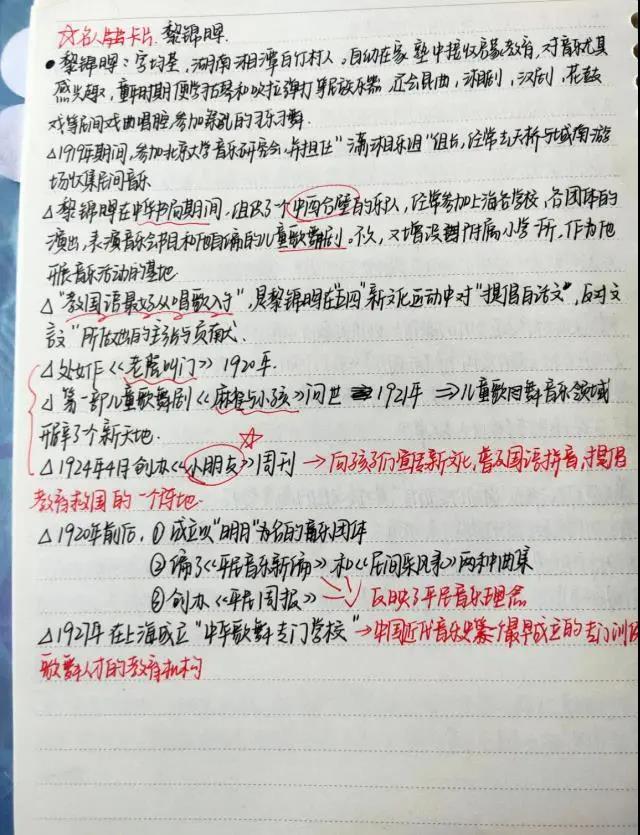 ☆名人生卡片. 黎锦晖.
•黎锦晖:字均荃,湖南湘潭石竹村人,自幼在家塾中接收启蒙教育,对音乐尤其
感兴趣,童年时期便学习古琴和吹拉弹打等民族乐器,还会昆曲,湘剧,汉剧,花鼓
戏等民间戏曲唱腔,参加祭孔的习乐习舞.
△1919年期间,参加北京大学音乐研究会,并担任"潇湘乐组"组长,经常去天桥与城南游
场收集民间音乐
△黎锦晖在中华书局期间,组织了一个中西合璧的乐队,经常参加上海各学校,各团体的
演出,表演音乐节目和他自编的儿童歌舞剧,不久,又增设附属小学 所,作为他
开展音乐活动的基地
△"教国语最好从唱歌入手",是黎锦晖在"五四"新文化运动中对"提倡白话文",反对文
言文"所做出的主张与贡献.
△处女作《老虎叫门》1920年.
△第一部儿童歌舞剧《麻雀与小孩》问世 1921年 ⇒儿童歌舞音乐领域
开辟了个新天地.
△1924年4月创办《小朋友》周刊 →向孩子们宣传新文化,普及国语拼音,提倡
教育救国的一个阵地.
△1920年前后,①成立以"明月"为名的音乐团体
②编了《平民音乐新编》和《民间采风录》两种曲集
③创办《平民周报》 反映了平民音乐理念
△1927年在上海成立"中华歌舞专门学校"→中国近代音乐史第一个最早成立的专门训练
歌舞人才的教育机构